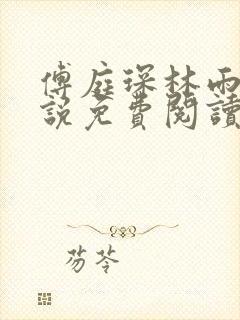 傅庭琛林雨
說免費閱讀
芴苓